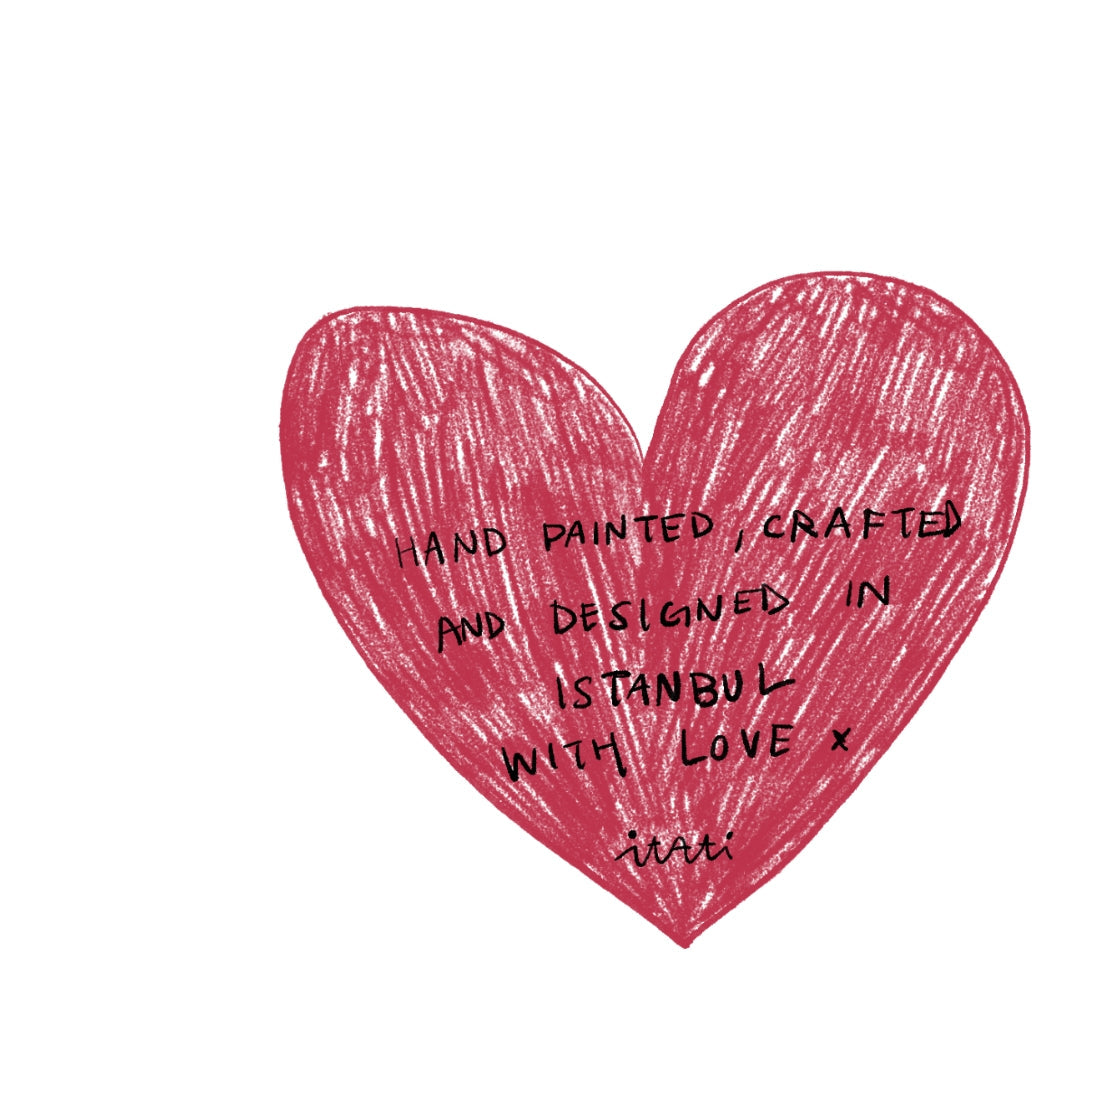 HAND PAINTED, CRAFTED
AND DESIGNED IN
ISTANBUL
WITH LOVE x
itati